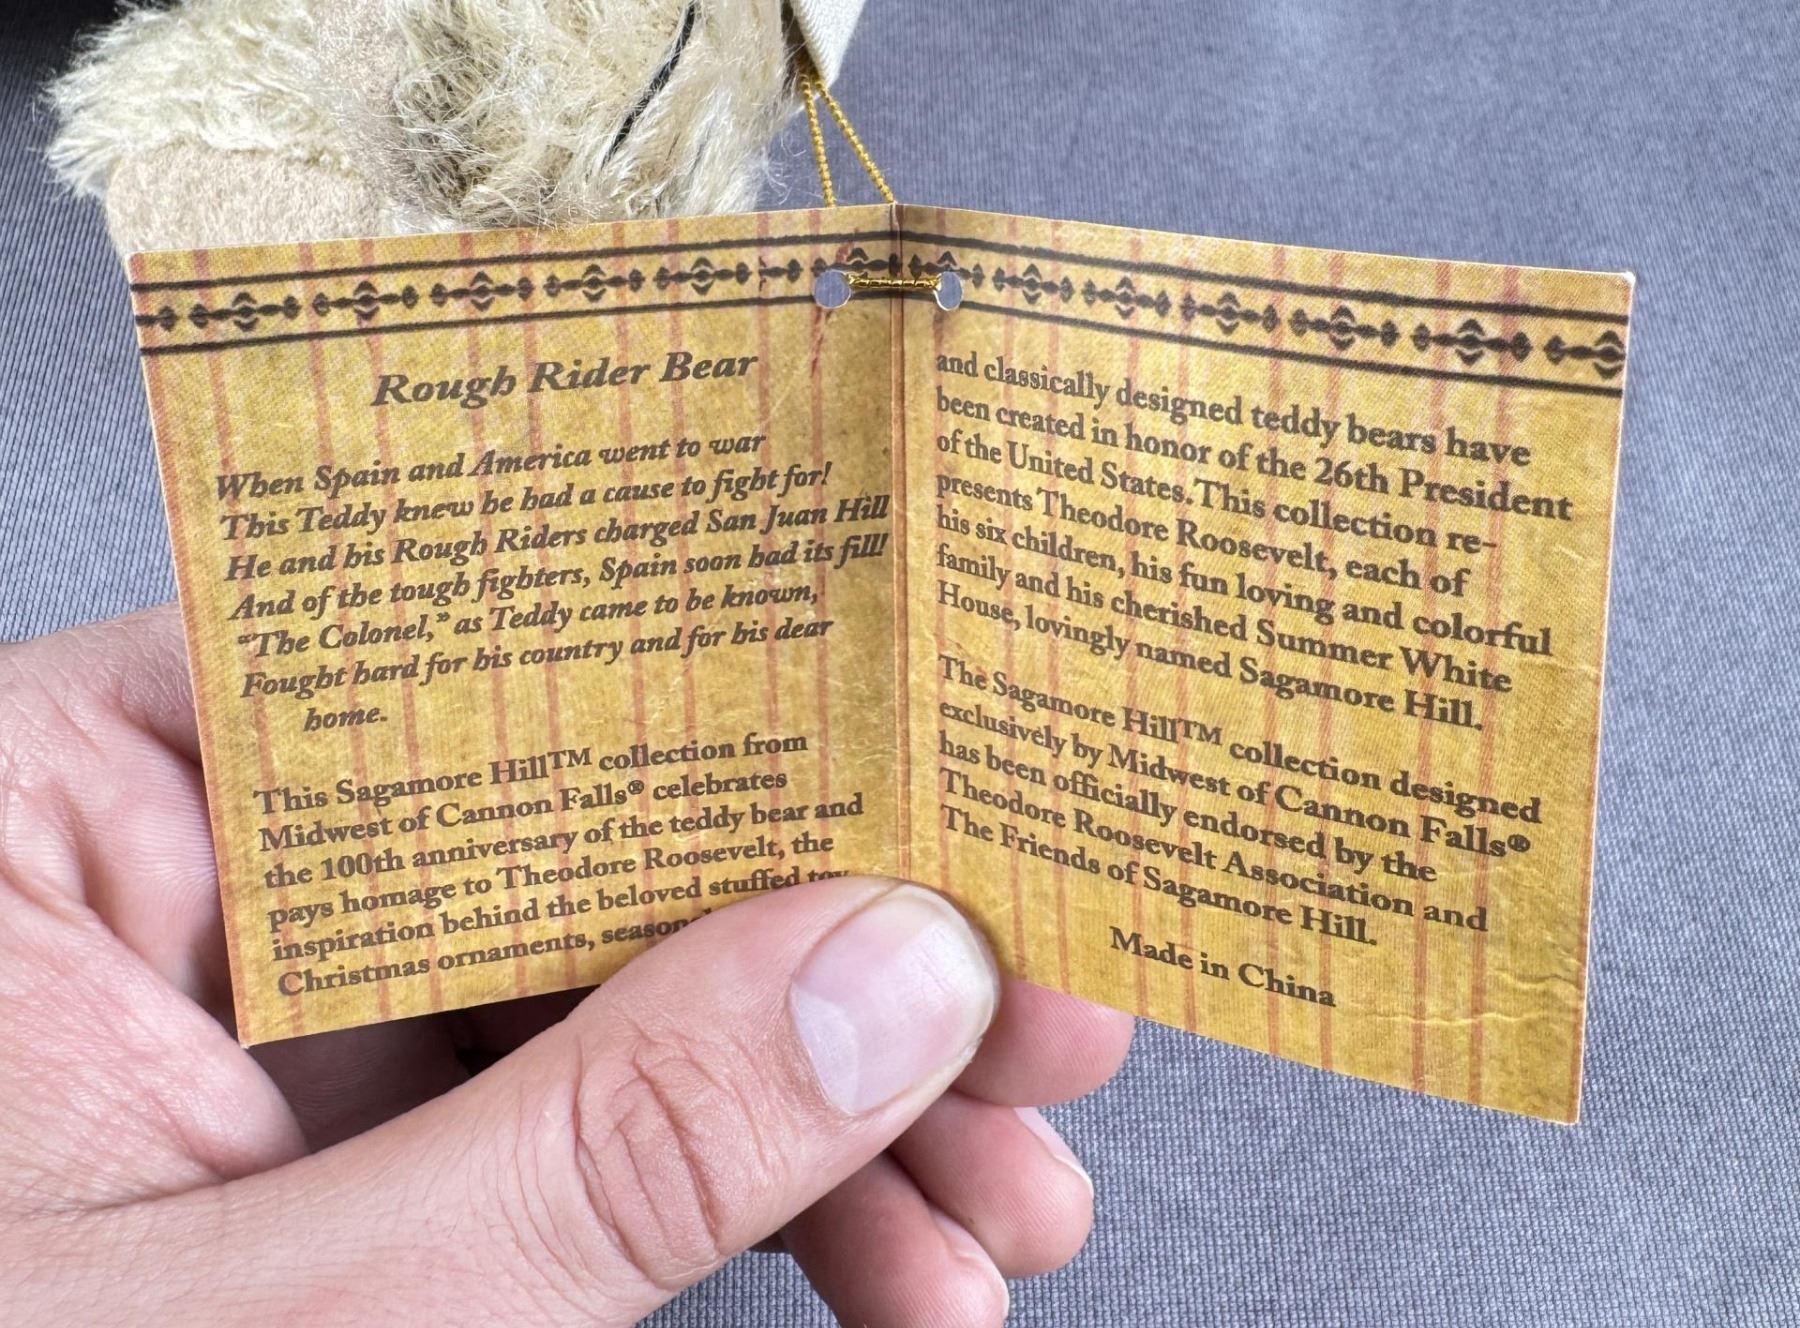 Rough Rider Bear
When Spain and America went to war
This Teddy knew he had a cause to fight for!
He and his Rough Riders charged San Juan Hill
And of the tough fighters, Spain soon had its fill!
"The Colonel," as Teddy came to be known,
Fought hard for his country and for his dear
home.
This Sagamore Hill™ collection from
Midwest of Cannon Falls® celebrates
the 100th anniversary of the teddy bear and
pays homage to Theodore Roosevelt, the
inspiration behind the beloved stuffed toy.
Christmas ornaments,
and classically designed teddy bears have
been created in honor of the 26th President
of the United States. This collection re-
presents Theodore Roosevelt, each of
his six children, his fun loving and colorful
family and his cherished Summer White
House, lovingly named Sagamore Hill.
The Sagamore Hill™ collection designed
exclusively by Midwest of Cannon Falls®
has been officially endorsed by the
Theodore Roosevelt Association and
The Friends of Sagamore Hill.
Made in China